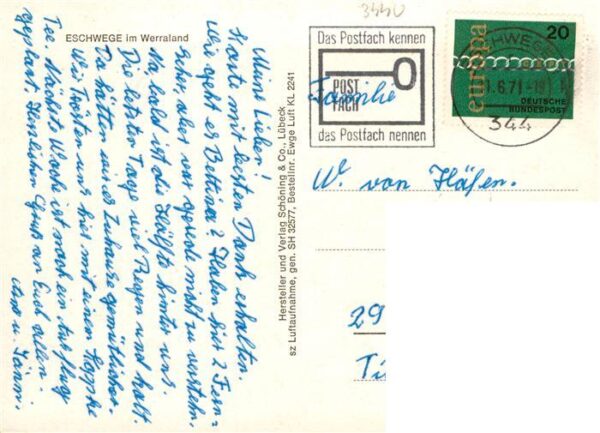 3440
ESCHWEGE im Werraland
Meine Lieben!
Karte mit bestem Dank erhalten.
Wie geht es Bettina? Haben hier 2 Fern-
seher, aber war gerade nicht zu verstehn.
Na, bald ist die Hälfte hinter uns.
Die letzten Tage viel Regen und kalt.
Da hätten wir es Zuhause gemütlicher.
Wir trösten uns hier mit einem
Tee. Nächste Woche ist noch ein Ausflug
geplant. Herzlichen Gruß an Euch allen.
u.
Hersteller und Verlag Schöning & Co., Lübeck
sz Luftaufnahme, gen. SH 32577, Bestellnr. Ewge Luft KL 2241
Das Postfach kennen
POST
FACH
das Postfach nennen
europa
20
DEUTSCHE
BUNDESPOST
ESCHWEGE
.6.71-19
344
Familie
W. von Häfen.
29